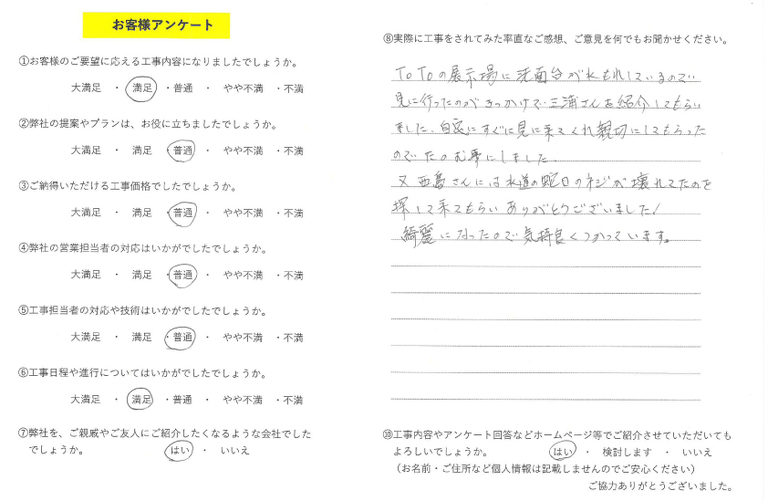 お客様アンケート
①お客様のご要望に応える工事内容になりましたでしょうか。
大満足 ・ 満足 ・普通 ・ やや不満 ・不満
②弊社の提案やプランは、お役に立ちましたでしょうか。
大満足 ・ 満足 ・普通 ・ やや不満 ・不満
③ご納得いただける工事価格でしたでしょうか。
大満足 ・ 満足 ・普通 ・ やや不満 ・不満
④弊社の営業担当者の対応はいかがでしたでしょうか。
大満足 ・ 満足 ・普通 ・ やや不満 ・不満
⑤工事担当者の対応や技術はいかがでしたでしょうか。
大満足 ・ 満足 ・普通 ・ やや不満 ・不満
⑥工事日程や進行についてはいかがでしたでしょうか。
大満足 ・ 満足 ・普通 ・ やや不満 ・不満
⑦弊社を、ご親戚やご友人にご紹介したくなるような会社でした
でしょうか。 はい ・ いいえ
⑧実際に工事をされてみた率直なご感想、ご意見を何でもお聞かせください。
ToToの展示場に洗面台が水もれしているので
見に行ったのがきっかけで三浦さんを紹介してもらい
ました、自宅にすぐに見に来てくれ親切にしてもらった
のでたのむ事にしました。
又西島さんには水道の蛇口のネジが壊れてたのを
探して来てもらいありがとうございました!
綺麗になったので気持良くつかっています。
⑩工事内容やアンケート回答などホームページ等でご紹介させていただいても
よろしいでしょうか。 はい ・ 検討します ・ いいえ
（お名前・ご住所など個人情報は記載しませんのでご安心ください）
ご協力ありがとうございました。